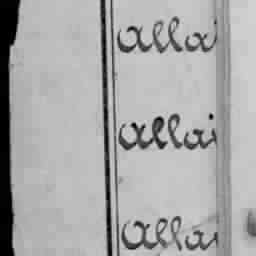 allai
allai
allai